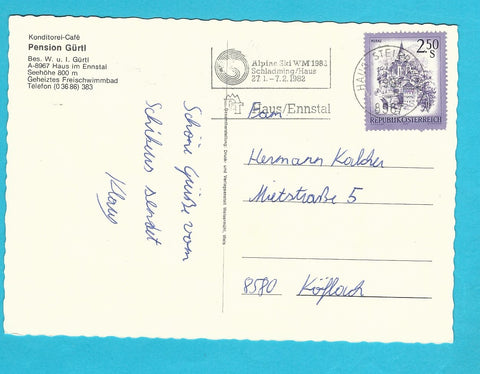 Konditorei-Café
Pension Gürtl
Bes. W. u. I. Gürtl
A-8967 Haus im Ennstal
Seehöhe 800 m
Geheiztes Freischwimmbad
Telefon (0 36 86) 383
Schöne Grüße vom
Schikurs sendet
Klaus
Alpine Ski WM 1982
Schladming/Haus
27.1. - 7.2. 1982
Haus/Ennstal
2.50
S
REPUBLIK ÖSTERREICH
8967
Fam
Hermann Kalcher
Mietstraße 5
8580 Köflach